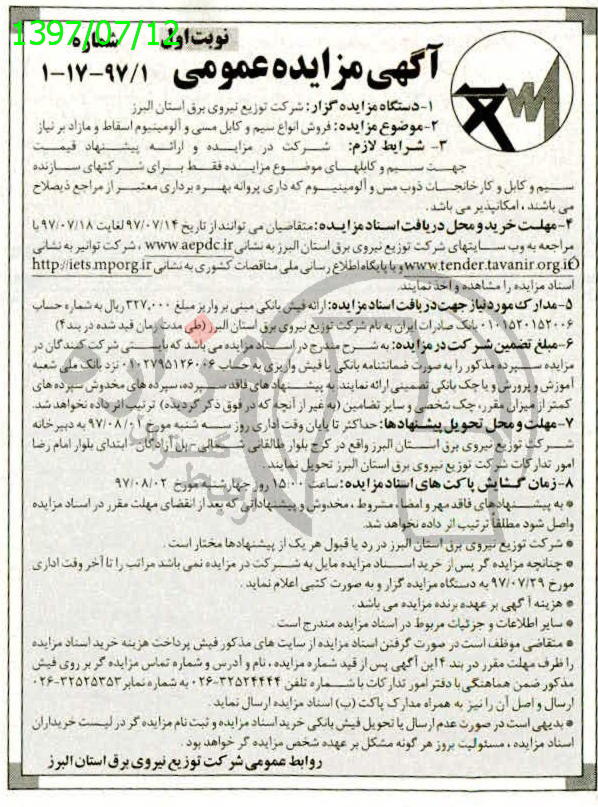 1397/07/12
نوبت اول
شماره
آگهی مزایده عمومی ۹۷/۱-۱۷-۱
۱-دستگاه مزایده گزار: شرکت توزیع نیروی برق استان البرز
۲-موضوع مزایده: فروش انواع سیم و کابل مسی و آلومینیوم اسقاط و مازاد بر نیاز
۳- شرایط لازم: شرکت در مزایده و ارائه پیشنهاد قیمت
جهت سیم و کابلهای موضوع مزایده فقط برای شرکتهای سازنده
سیم و کابل و کارخانجات ذوب مس و آلومینیوم که داری پروانه بهره برداری معتبر از مراجع ذیصلاح
می باشند ، امکانپذیر می باشد.
۴-مهلت خرید و محل دریافت اسناد مزایده: متقاضیان می توانند از تاریخ ۹۷/۰۷/۱۴ لغایت ۹۷/۰۷/۱۸ با
مراجعه به وب سایتهای شرکت توزیع نیروی برق استان البرز به نشانی www.aepdc.ir ، شرکت توانیر به نشانی
www.tender.tavanir.org.ir و یا پایگاه اطلاع رسانی ملی مناقصات کشوری به نشانی http://iets.mporg.ir
اسناد مزایده را مشاهده و اخذ نمایند.
۵-مدارک مورد نیاز جهت دریافت اسناد مزایده: ارائه فیش بانکی مبنی بر واریز مبلغ ۳۲۷,۰۰۰ ریال به شماره حساب
۰۱۰۱۵۲۰۱۵۲۰۰۶ بانک صادرات ایران به نام شرکت توزیع نیروی برق استان البرز (طی مدت زمان قید شده در بند ۴)
۶-مبلغ تضمین شرکت در مزایده: به شرح مندرج در اسناد مزایده می باشد که بایستی شرکت کنندگان در
مزایده سپرده مذکور را به صورت ضمانتنامه بانکی یا فیش واریزی به حساب ۰۱۰۲۷۹۵۱۲۶۰۰۶ نزد بانک ملی شعبه
آموزش و پرورش و یا چک بانکی تضمینی ارائه نمایند به پیشنهاد های فاقد سپرده، سپرده های مخدوش سپرده های
کمتر از میزان مقرر، چک شخصی و سایر تضامین (به غیر از آنچه که در فوق ذکر گردیده) ترتیب اثر داده نخواهد شد.
۷-مهلت و محل تحویل پیشنهادها: حداکثر تا پایان وقت اداری روز سه شنبه مورخ ۹۷/۰۸/۰۱ به دبیرخانه
شرکت توزیع نیروی برق استان البرز واقع در کرج بلوار طالقانی شمالی - پل آزادگان - ابتدای بلوار امام رضا
امور تدارکات شرکت توزیع نیروی برق استان البرز تحویل نمایند .
۸-زمان گشایش پاکت های اسناد مزایده: ساعت ۱۵:۰۰ روز چهارشنبه مورخ ۹۷/۰۸/۰۲
* به پیشنهادهای فاقد مهر و امضا ، مشروط ، مخدوش و پیشنهاداتی که بعد از انقضای مهلت مقرر در اسناد مزایده
واصل شود مطلقا ترتیب اثر داده نخواهد شد.
* شرکت توزیع نیروی برق استان البرز در رد یا قبول هر یک از پیشنهادها مختار است .
* چنانچه مزایده گر پس از خرید اسناد مزایده مایل به شرکت در مزایده نمی باشد مراتب را تا آخر وقت اداری
مورخ ۹۷/۰۷/۲۹ به دستگاه مزایده گزار و به صورت کتبی اعلام نماید .
* هزینه آگهی بر عهده برنده مزایده می باشد .
* سایر اطلاعات و جزئیات مربوط در اسناد مزایده مندرج است .
* متقاضی موظف است در صورت گرفتن اسناد مزایده از سایت های مذکور فیش پرداخت هزینه خرید اسناد مزایده
را ظرف مهلت مقرر در بند ۴ این آگهی پس از قید شماره مزایده ، نام و آدرس و شماره تماس مزایده گر بر روی فیش
مذکور ضمن هماهنگی با دفتر امور تدارکات با شماره تلفن ۳۲۵۲۴۴۴۴-۰۲۶ به شماره نمابر ۳۲۵۲۵۳۵۳-۰۲۶
ارسال و اصل آن را نیز به همراه مدارک پاکت (ب) اسناد مزایده ارسال نماید .
* بدیهی است در صورت عدم ارسال یا تحویل فیش بانکی خرید اسناد مزایده و ثبت نام مزایده گر در لیست خریداران
اسناد مزایده ، مسئولیت بروز هر گونه مشکل بر عهده شخص مزایده گر خواهد بود .
روابط عمومی شرکت توزیع نیروی برق استان البرز